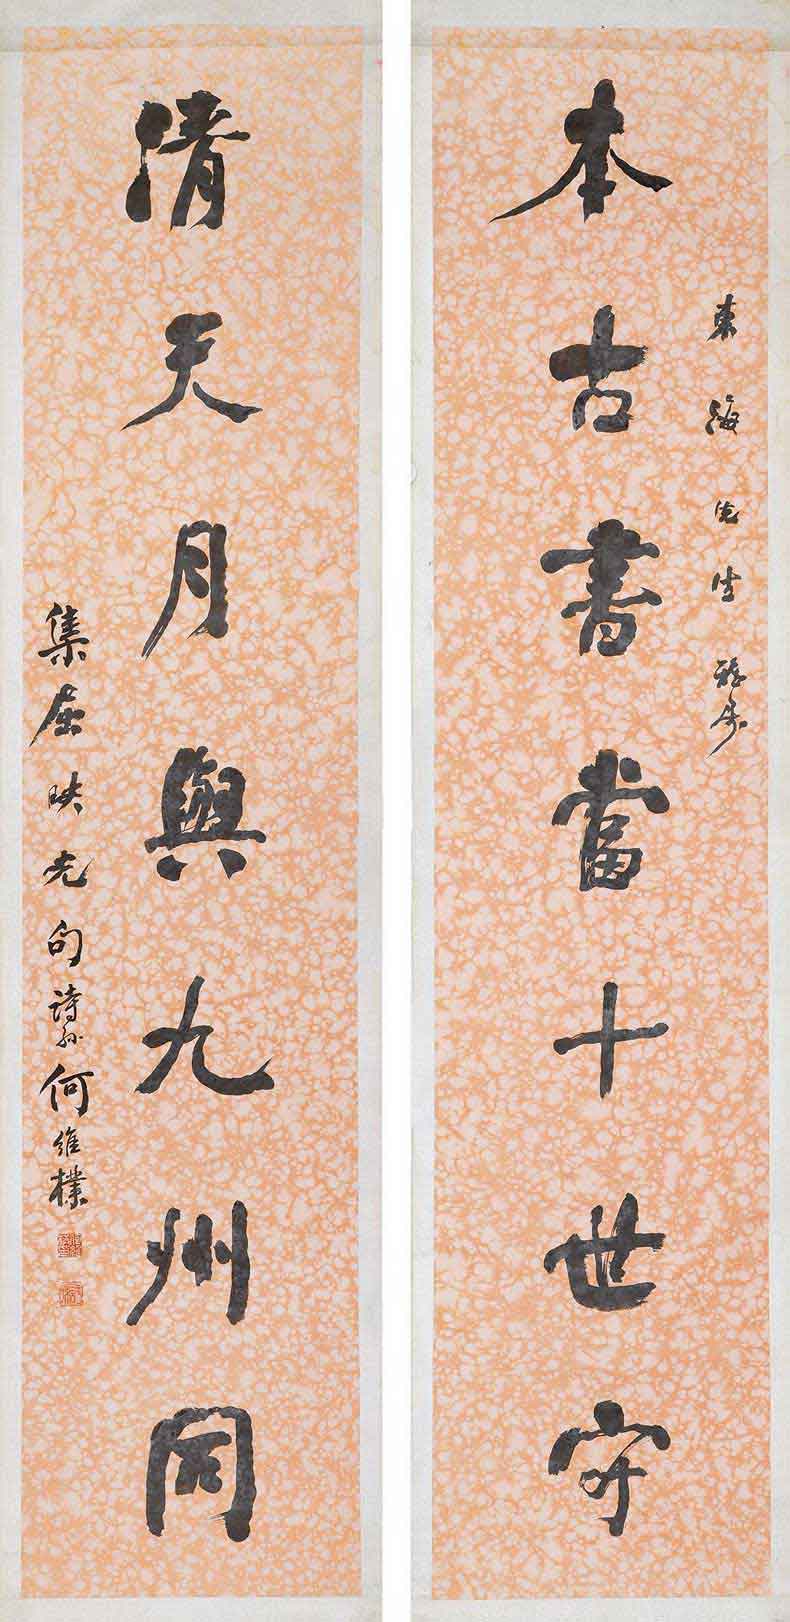 東海先生雅屬
本古書當十世守
清天月與九州同
集屈映光句詩孫何維樸